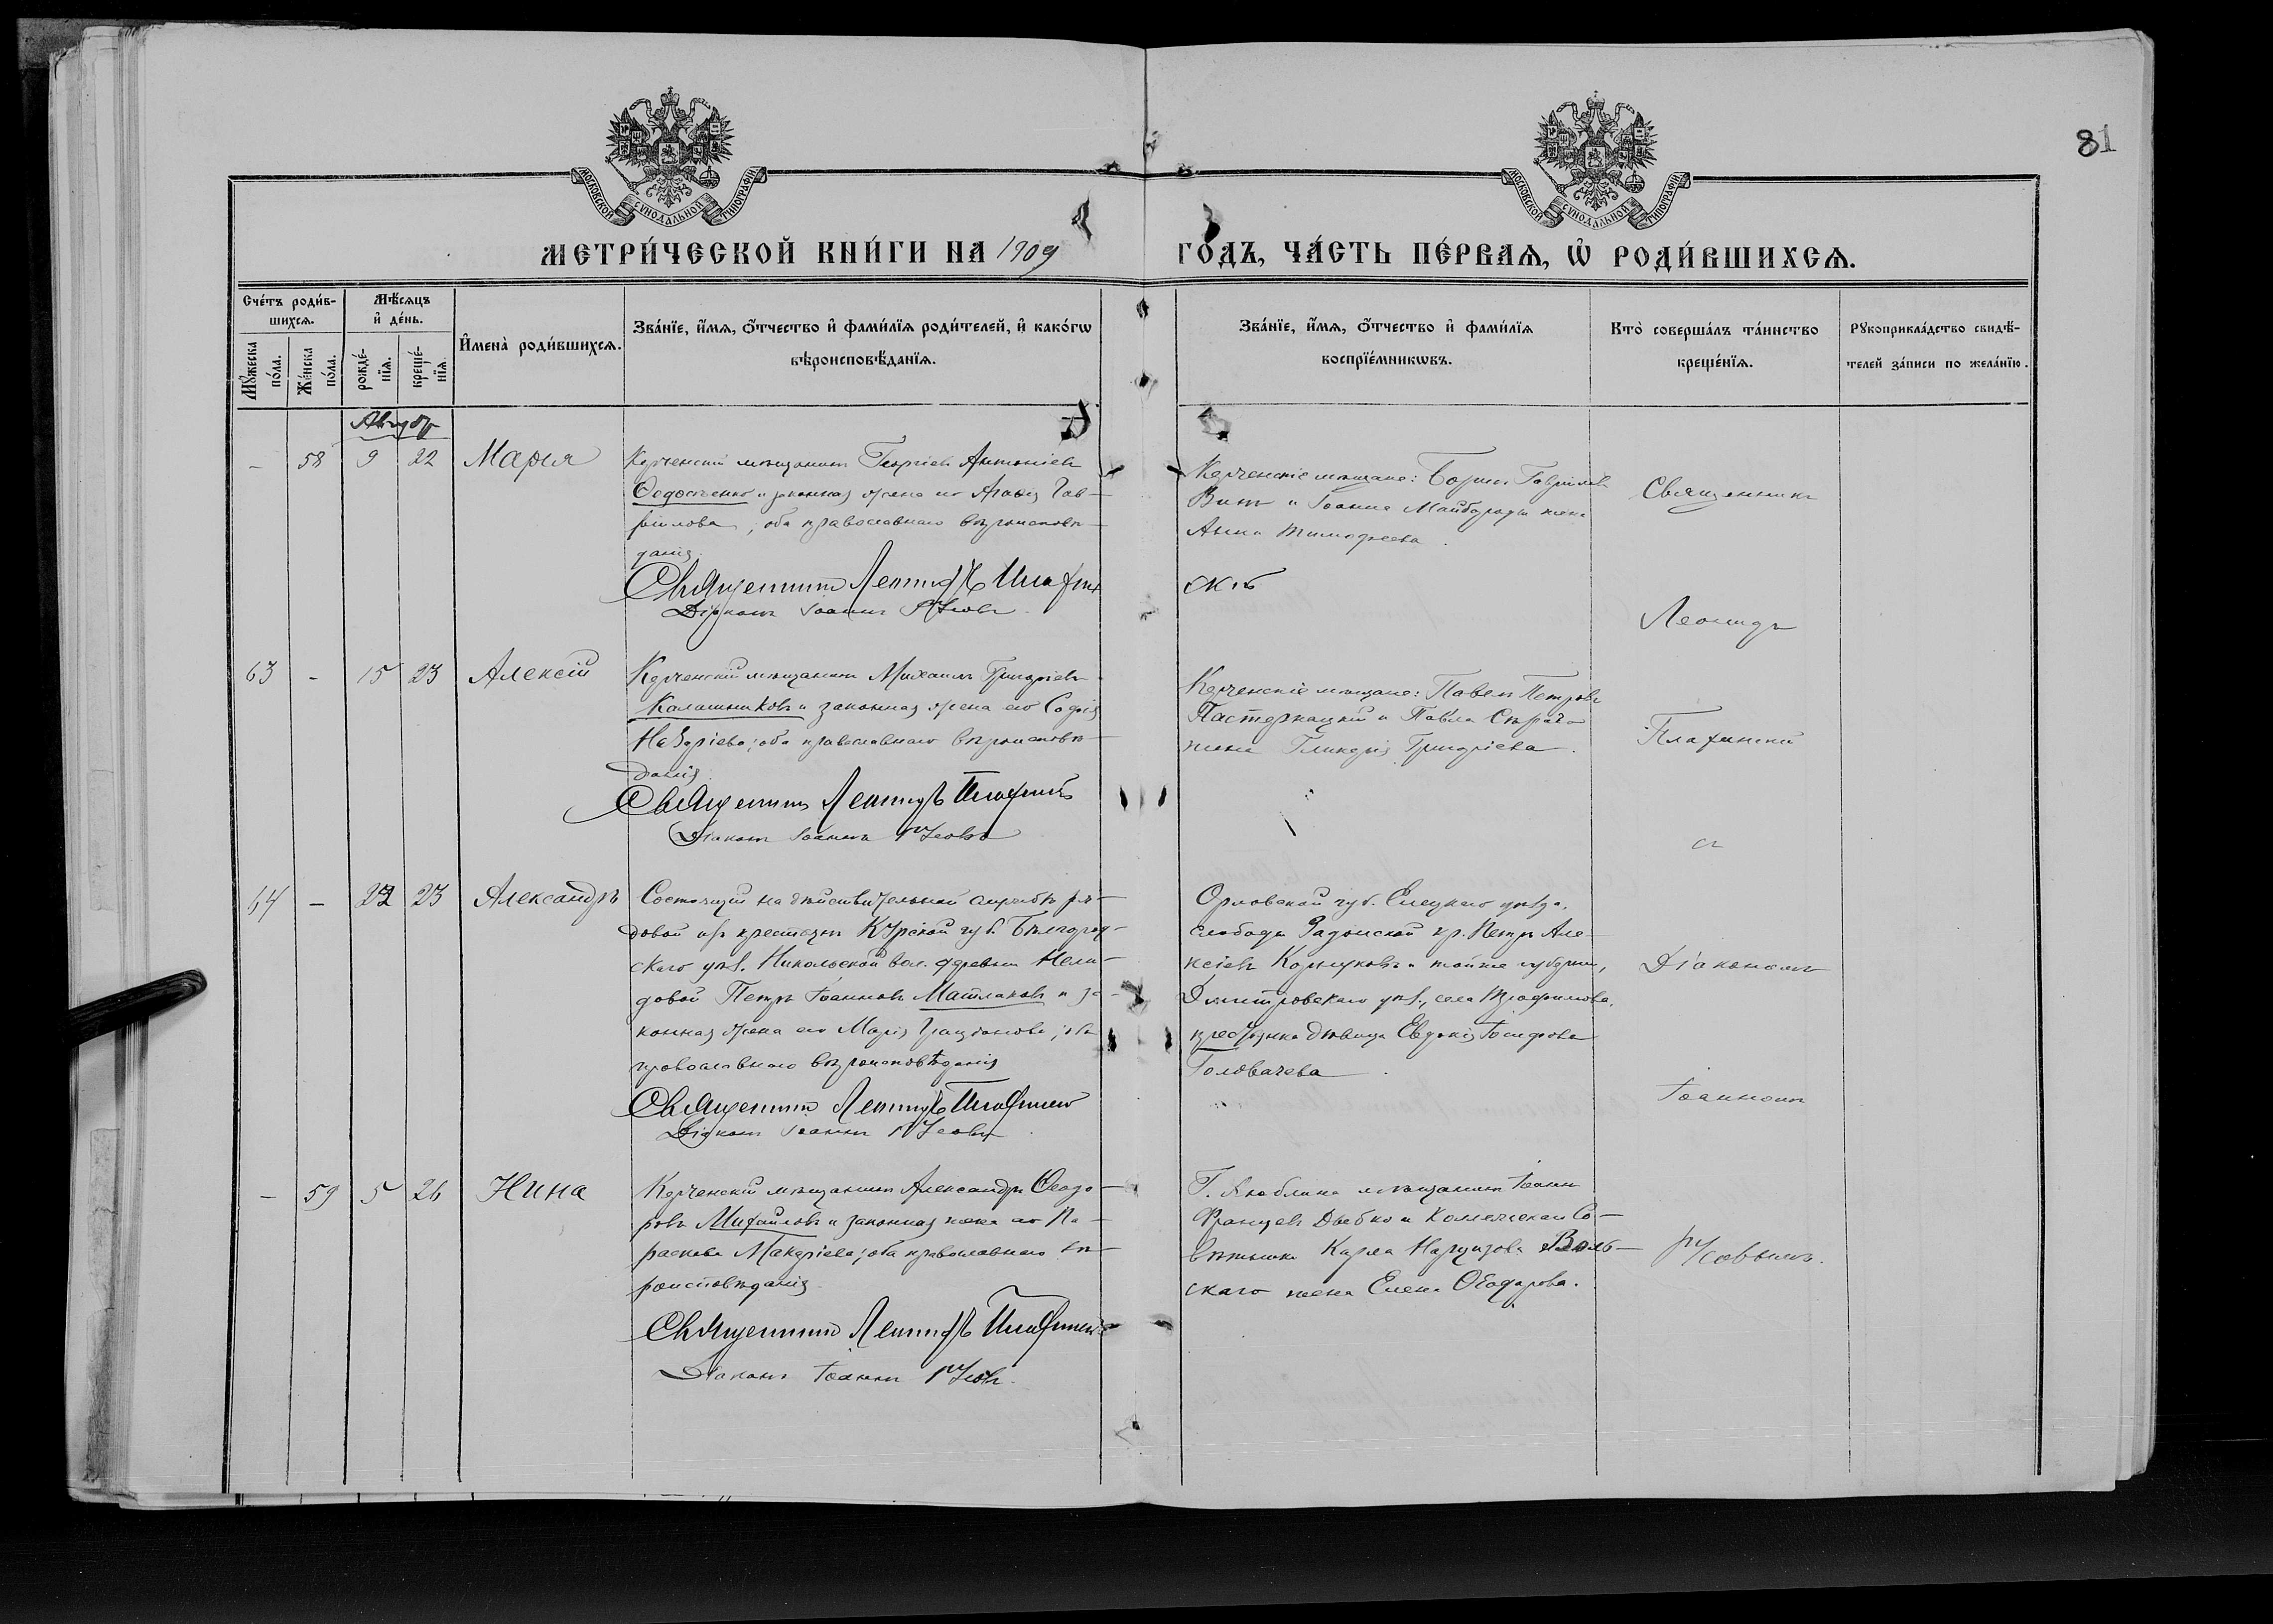 81
МОСКОВСКОЙ СѴНОДАЛЬНОЙ ТИПОГРАФІИ
МОСКОВСКОЙ СѴНОДАЛЬНОЙ ТИПОГРАФІИ
МЕТРИ́ЧЕСКОЙ КНИ́ГИ НА 1909 ГО́ДЪ, ЧА́СТЬ ПЕ́РВАѦ, Ѡ҆ РОДИ́ВШИХСѦ.
Сче́тъ роди́в-
шихсѧ.
Мѣ́сѧцъ
и҆ де́нь.
И҆мена̀ роди́вшихсѧ.
Зва́нїе, и҆́мѧ, ѻ҆́тчество и҆ фами́лїѧ роди́телей, и҆ како́гѡ
вѣроисповѣ́данїѧ.
Зва́нїе, и҆́мѧ, ѻ҆́тчество и҆ фами́лїѧ
воспрїе́мникѡвъ.
Кто̀ соверша́лъ та́инство
креще́нїѧ.
Рꙋкоприкла́дство свидѣ́-
телей за́писи по жела́нїю.
Мꙋ́жеска
по́ла.
Же́нска
по́ла.
рожде́-
нїѧ.
креще́-
нїѧ.
Августъ
– 58 9 22 Марія
Керченскій мѣщанинъ Георгій Антоніевъ
Ѳедосѣенко и законная жена его Агаѳія Гав-
ріилова, оба православнаго вѣроисповѣ-
данія.
Священникъ Леонидъ
Діаконъ Іоаннъ Русовъ
Керченскіе мѣщане: Борисъ Гавріиловъ
и Іоанна Майбороды жена
Анна Тимофеева.
Священникъ
Леонидъ
63 – 15 23 Алексій
Керченскій мѣщанинъ Михаилъ Григоріевъ
Калашниковъ и законная жена его Софія
Назаріева; оба православнаго вѣроисповѣ-
данія
Священникъ Леонидъ
Діаконъ Іоаннъ Русовъ
Керченскіе мѣщане: Павелъ Петровъ
Пастернацкій и Павла
жена Гликерія Григоріева.
съ
64 – 22 23 Александръ
Состоящій на дѣйствительной службѣ ря-
довой изъ крестьянъ Курской губ. Бѣлгород-
скаго уѣз. Никольской вол. деревни Нели-
довой Петръ Іоанновъ Матлаховъ и за-
конная жена его Марія; оба
православнаго вѣроисповѣданія
Священникъ Леонидъ
Діаконъ Іоаннъ Русовъ
Орловской губ. Елецкаго уѣзда.
слободы Задонской кр. Петръ Але-
ксіевъ и той же губерніи,
Дмитровскаго уѣз., села
крестьянка дѣвица Евдокія Іосифова
Головачева
Діакономъ
Іоанномъ
– 59 5 26 Нина
Керченскій мѣщанинъ Александръ Ѳеодо-
ровъ Михайловъ и законная жена его Па-
раскева Макаріева; оба православнаго вѣ-
роисповѣданія
Священникъ Леонидъ
Діаконъ Іоаннъ Русовъ
Г. Люблина мѣщанинъ Іоаннъ
Францевъ и Коллежскаго Со-
вѣтника Карла Нарцизова Воль-
скаго жена Елена Ѳеодорова.
Русовымъ.